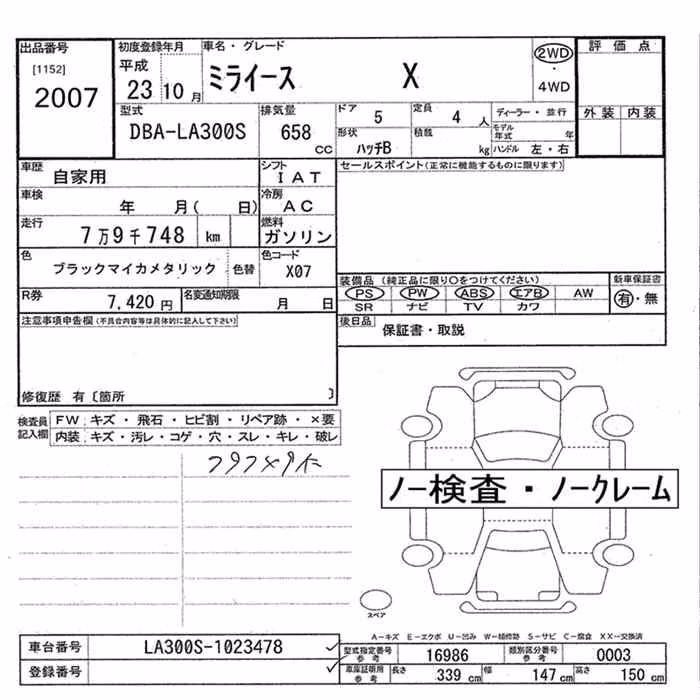 出品番号 初度登録年月 車名・グレード 評価点
[1152] 平成 ミライース X 2WD
2007 23 10月 ・ 4WD
型式 排気量 ドア 5 定員 4人 ディーラー・並行 外装 内装
DBA-LA300S 658cc 形状 ハッチB 積載 kg モデル年式 年
ハンドル 左・右
車歴 自家用 シフト IAT セールスポイント(正常に機能するものに限ります)
車検 年 月( 日) 冷房 AC
走行 7万9千748 km 燃料 ガソリン
色 ブラックマイカメタリック 色替 色コード X07
装備品(純正品に限り○をつけてください) 新車保証書
R券 7,420円 名変通知期限 月 日 PS PW ABS エアB AW 有・無
SR ナビ TV カワ
注意事項申告欄(不具合内容等は具体的に記入して下さい) 後日品 保証書・取説
修復歴 有〔箇所 〕
検査員記入欄 FW キズ・飛石・ヒビ割・リペア跡・×要
内装 キズ・汚レ・コゲ・穴・スレ・キレ・破レ
ノー検査・ノークレーム
スペア
A-キズ E-エクボ U-凹み W-補修跡 S-サビ C-腐食 XX-交換済
車台番号 LA300S-1023478 型式指定番号 参考 16986 類別区分番号 参考 0003
登録番号 車庫証明用 参考 長さ 339cm 幅 147cm 高さ 150cm